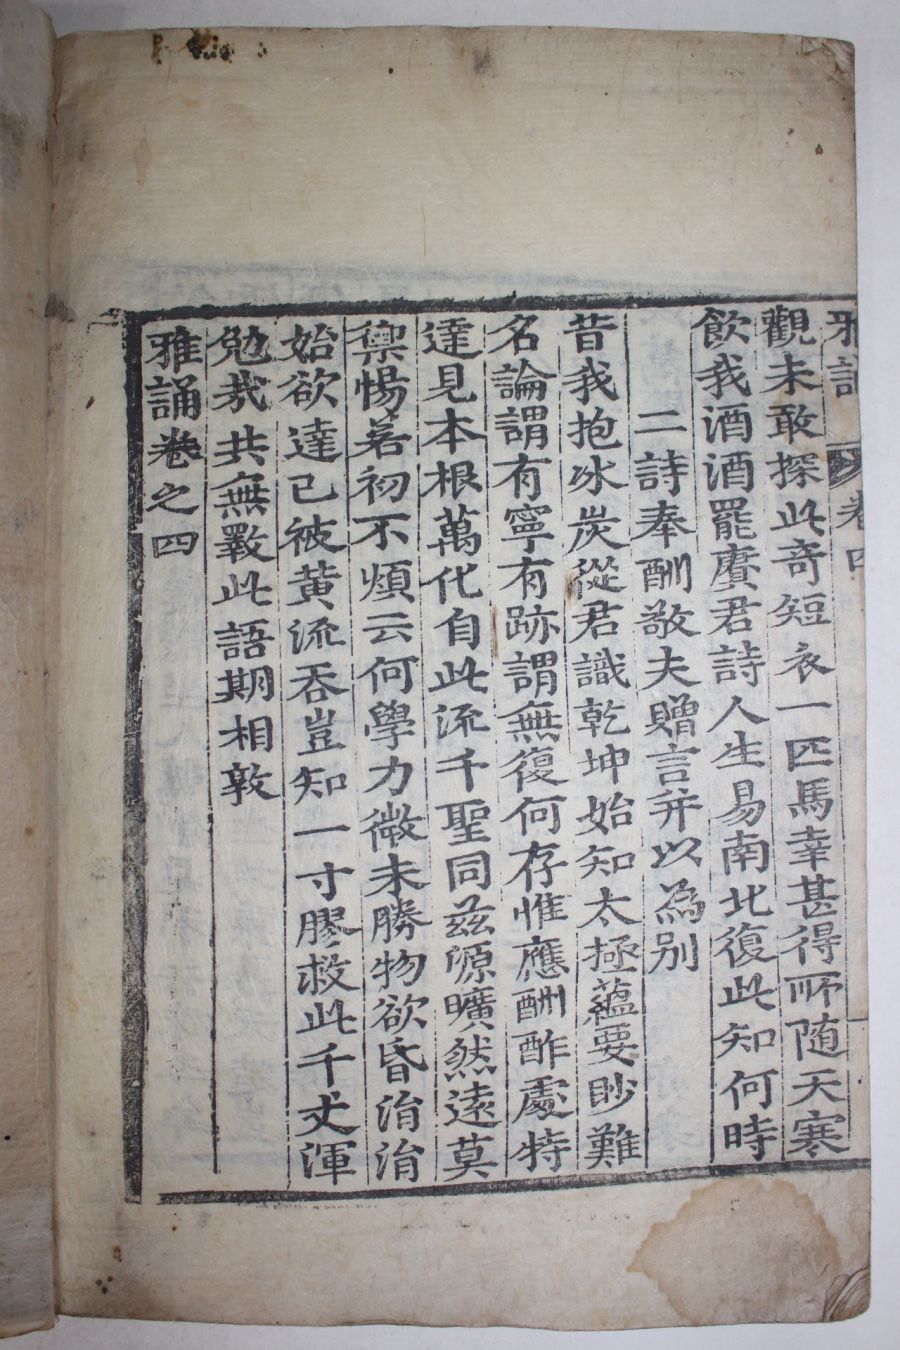 雅誦 卷四
觀未敢探此奇短衣一匹馬幸甚得所随天寒
飲我酒酒罷賡君詩人生易南北復此知何時
二詩奉酬敬夫贈言并以為别
昔我抱冰炭從君識乾坤始知太極蘊要眇難
名論謂有寧有跡謂無復何存惟應酬酢處特
達見本根萬化自此流千聖同兹源曠然遠莫
禦惕若初不煩云何學力微未勝物欲昏涓涓
始欲達已被黄流吞豈知一寸膠救此千丈渾
勉哉共無斁此語期相敦
雅誦卷之四